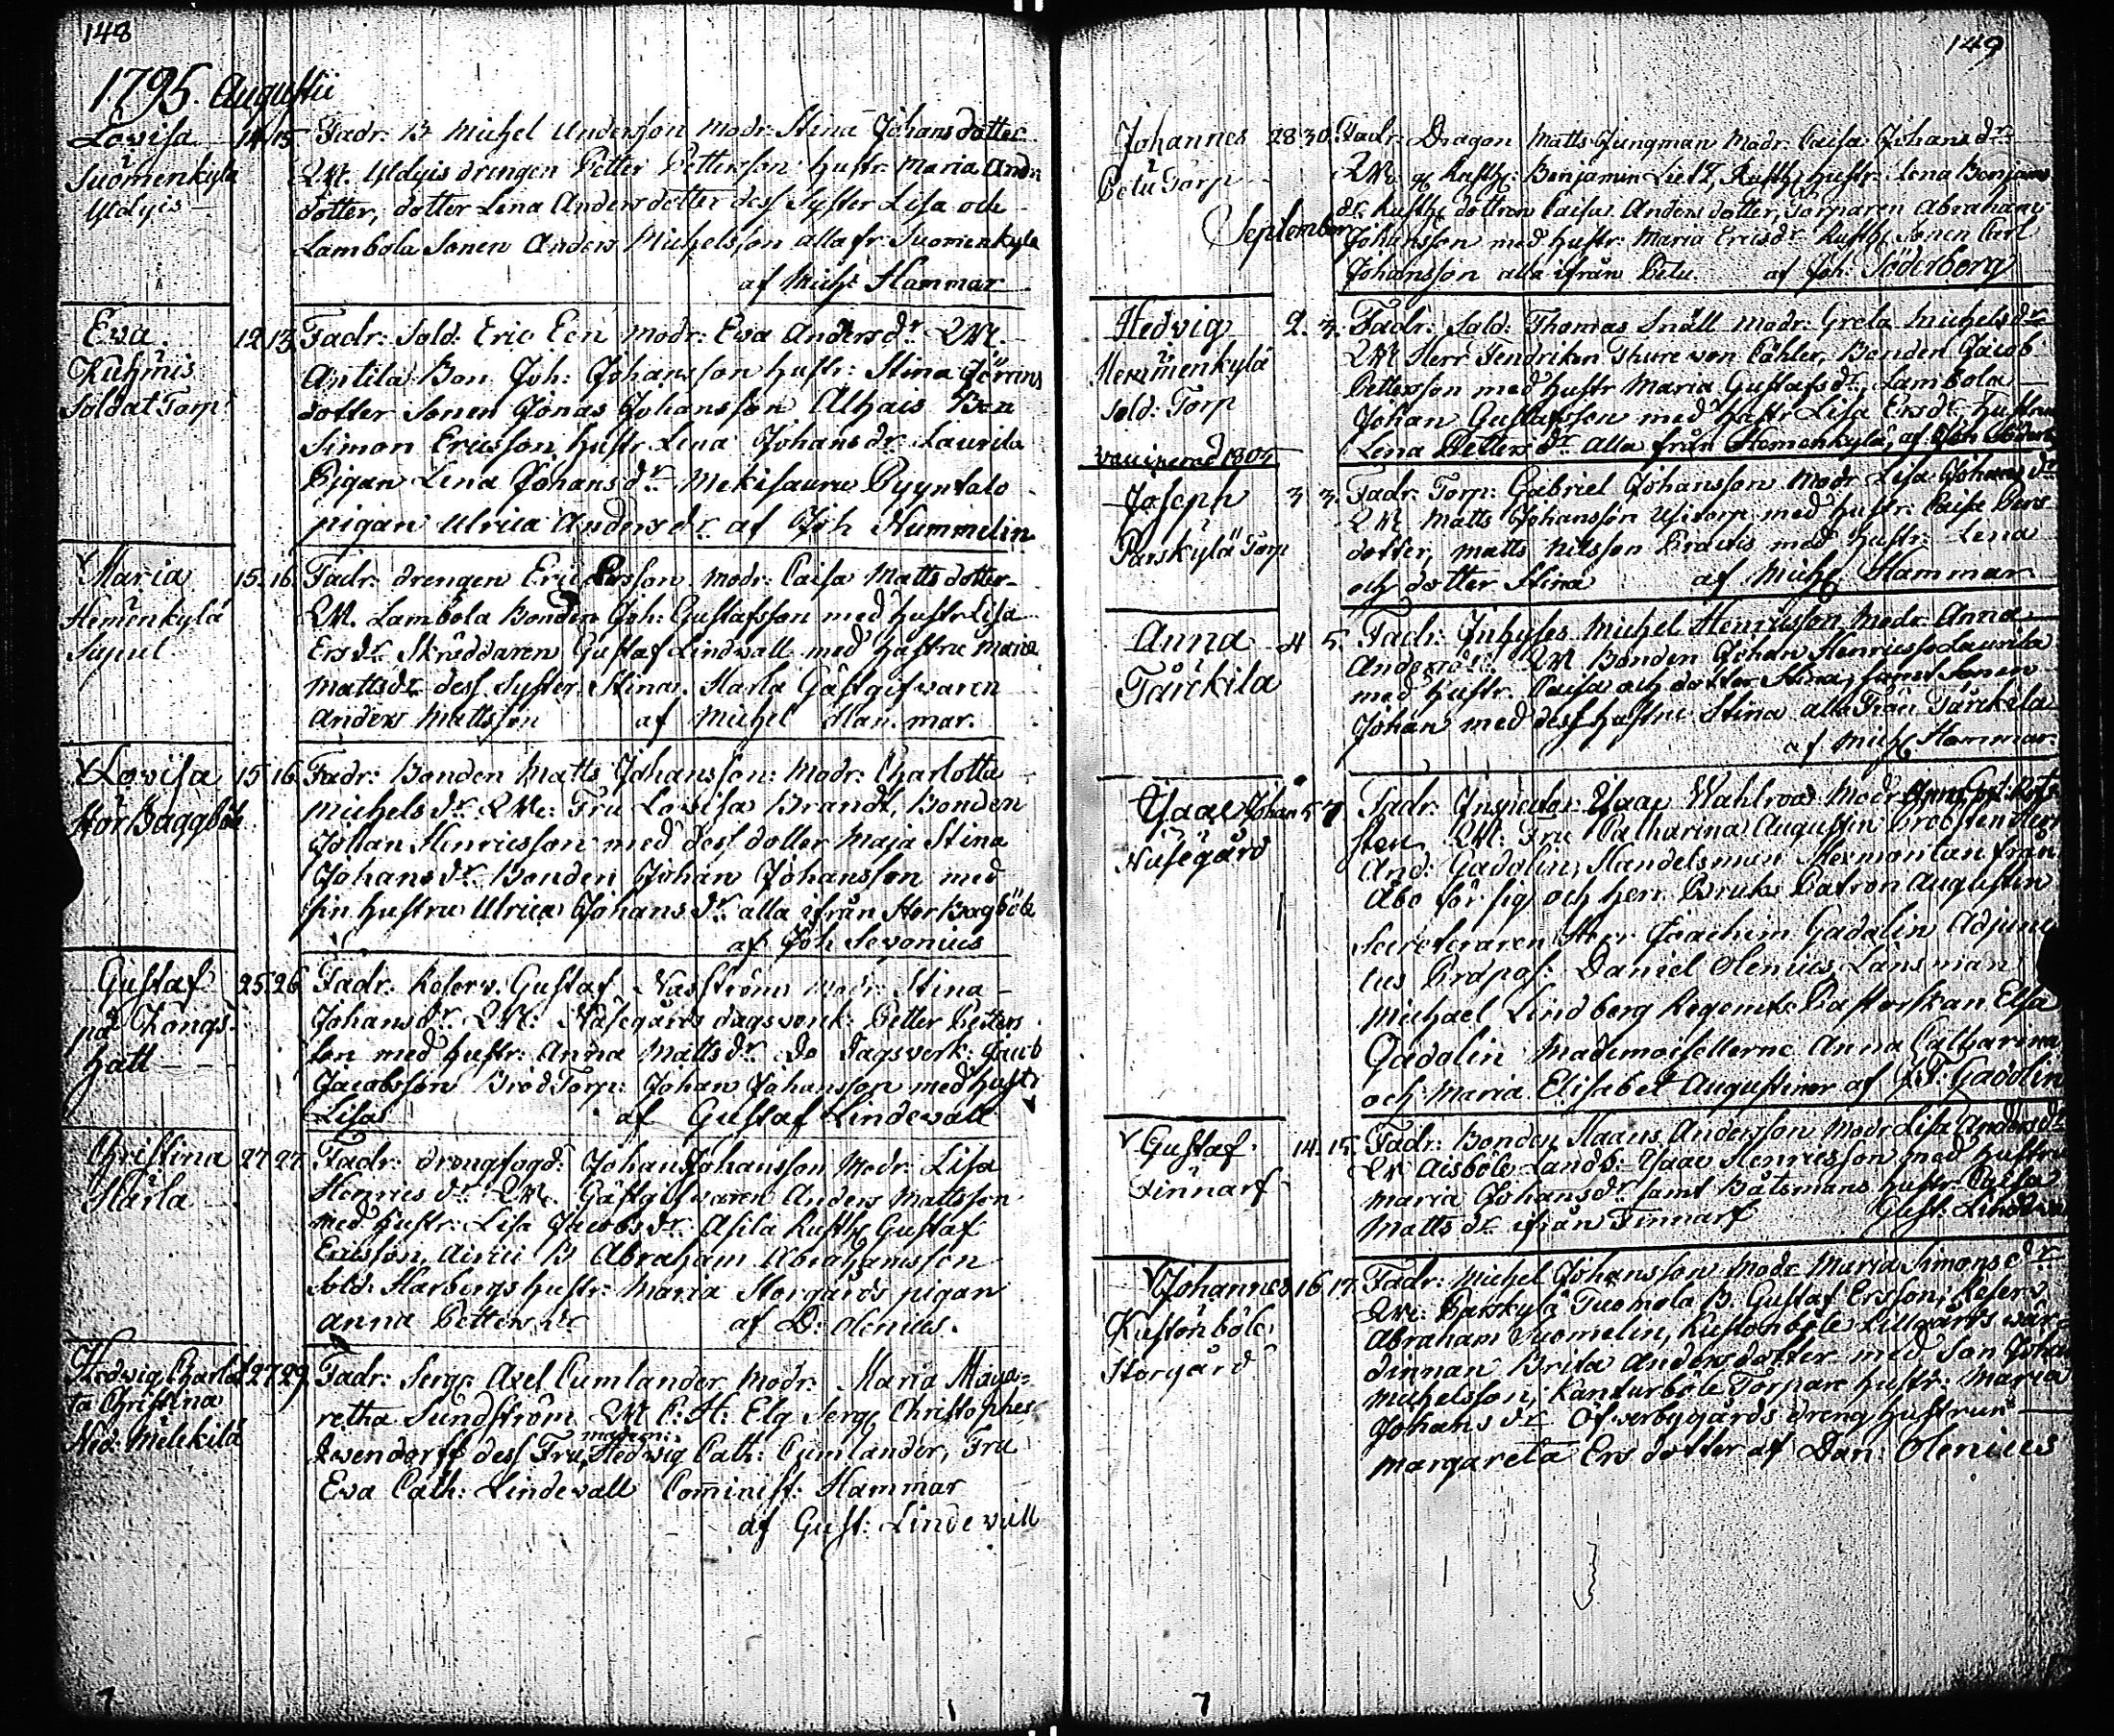 148
1795. Augustii
Lovisa 14 15 Fadr: B. Michel Andersson Modr: Stina Johansdotter
Suomenkylä QW. Yldyis drengen Petter Pettersson hustr: Maria Anders
Yldyis dotter, dotter Lena Andersdotter dess Syster Lisa och
Lambola Sonen Anders Michelsson alla fr: Suomenkyla
af Mich: Hammar
Eva 12 13 Fadr: Sold: Eric Een Modr: Eva Andersdr. QW.
Kuhmis Antila Bon Joh: Johansson hustr: Stina Jörans
Soldat Torp dotter Sonen Jonas Johansson Alhais Bon
Simon Ericsson hustr Lena Johansdr Laurila
Pigan Lena Johansdr Mekisauru Pyyntalo
pigan Ulrica Andersdr. af Joh Hummelin
Maria 15. 16. Fadr: drengen Eric Ersson Modr: Caisa Mattsdotter
Hemenkylä QW. Lambola Bonden Joh: Gustafsson med hustr Lisa
Ersdr. Skräddaren Gustaf Lindvall med hustru Maria
Mattsdr dess Syster Stina. Harla Gästgifvaren
Anders Mattsson af Michel Hammar.
Lovisa 15 16 Fadr: Bonden Matts Johansson: Modr: Charlotta
Stor Baggböle Michelsdr QW: Fru Lovisa Brandt, Bonden
Johan Henricsson med dess dotter Maja Stina
Johansdr. Bonden Johan Johansson med
sin hustru Ulrica Johansdr alla ifrån Stor Bagböle
af Joh Sevonius
Gustaf 25 26 Fadr: Reserv. Gustaf Nasström Modr: Stina
på Kongs- Johansdr. QW: Näsegårds dagsverk: Petter Petters
hatt son med hustr: Anna Mattsdr Do dagsverk: Jacob
Jacobsson Bröd Torp: Johan Johansson med hustr
Lisa af Gustaf Lindevall
Christina 27 27 Fadr: drengfogd: Johan Johansson Modr: Lisa
Härla Henricsdr QW. Gästgifvaren Anders Mattsson
med hustr: Lisa Jacobsdr Asila Rusth: Gustaf
Ericsson, B Abraham Abrahamsson
Sold: Harbergs hustr: Maria Storgårds pigan
Anna Pettersdr af D: Olenius.
Hedvig Charlot 27 29 Fadr: Serg: Axel Cumlander Modr: Maria Marga-
ta Christina retha Sundström QW C: H: Elg Serg: Christopher
Ned: Melekilä dess Fru, Hedvig Cath: Cumlander, Fru
Eva Cath: Lindevall Comminist: Hammar
af Gust: Lindevall
149
Johannes 28 30. Fadr: Dragon Matts Jungman Modr: Caisa Johansdr.
Betu Torp QW: Rusth: Benjamin Rusth: hustr: Lena Benjams
dr. Rusth: dottren Caisa Andersdotter, Torparen Abraham
September Johansson med hustr: Maria Ericsdr Rusth: Sonen Carl
Johansson alla ifrån Betu. af Joh: Söderborg
Hedvig 2. 3. Fadr: Sold: Thomas Snäll Modr: Greta Michelsdr
Hemmenkylä QW Herr Fendriken Thure von Cöhler, Bonden Jacob
Sold: Torp Pettersson med hustr Maria Gustafsdr. Lambola
Johan Gustafsson med hustr Lisa Ersdr, hustrun
vaccinerad 1804 Lena Pettersdr alla från Hemenkylä, af Joh Söderb
Joseph 3 3. Fadr: Torp: Gabriel Johansson Modr Lisa Johansdr
Parskylä Torp QW Matts Johansson med hustr: Caisa
dotter, Matts Nilsson med hustr: Lena
och dotter Stina af Mich: Hammar
Anna 4 5. Fadr: Inhyses Michel Henricsson Modr: Anna
Tarkila Andersdr QW Bonden Johan Henricsson Laurila
med hustr: Caisa och dotter Stina samt Sonen
Johan med dess hustru Stina alla från Tarkila
af Mich: Hammar
Isaac Johan 5 7 Fadr: Inspector Isaac Wahlroos Modr Anna
Nusegård sten. QW: Fru Catharina Augustin Probsten Herr
And: Gadolin, Handelsman från
Åbo för sig och herr Bruks Patron Augustin
Secreteraren Herr Joachim Gadolin Adjunc
tus Daniel Olenius, Länsman
Michael Lindberg Regemts: Pastorskan Elsa
Gadolin Mademoisellerne Anna Catharina
och Maria Elisabet Augustiner af J:F: Gadolin
Gustaf 14. 15. Fadr: Bonden Andersson Modr Lisa Andersdr
Finnarf QW Aisböle Landb: Isaac Henricsson med hustru
Maria Johansdr samt Båtsmans hustr: Caisa
Mattsdr ifrån Finnarf Gust: Lindevall
Johannes 16 17. Fadr: Michel Johansson Modr Maria Simonsdr
Kustonböle QW: Parskylä Tuomola B: Gustaf Ersson, Reserv
Storgård Abraham Tuomelin, Kustonböle Lillgårds wär-
dinnan Brita Andersdotter med Son Johan
Michelsson, Kanturböle Torpare hustr: Maria
Johansdr Öfverbygårds dreng hustrun
Margareta Ersdotter af Dan: Olenius
7
7